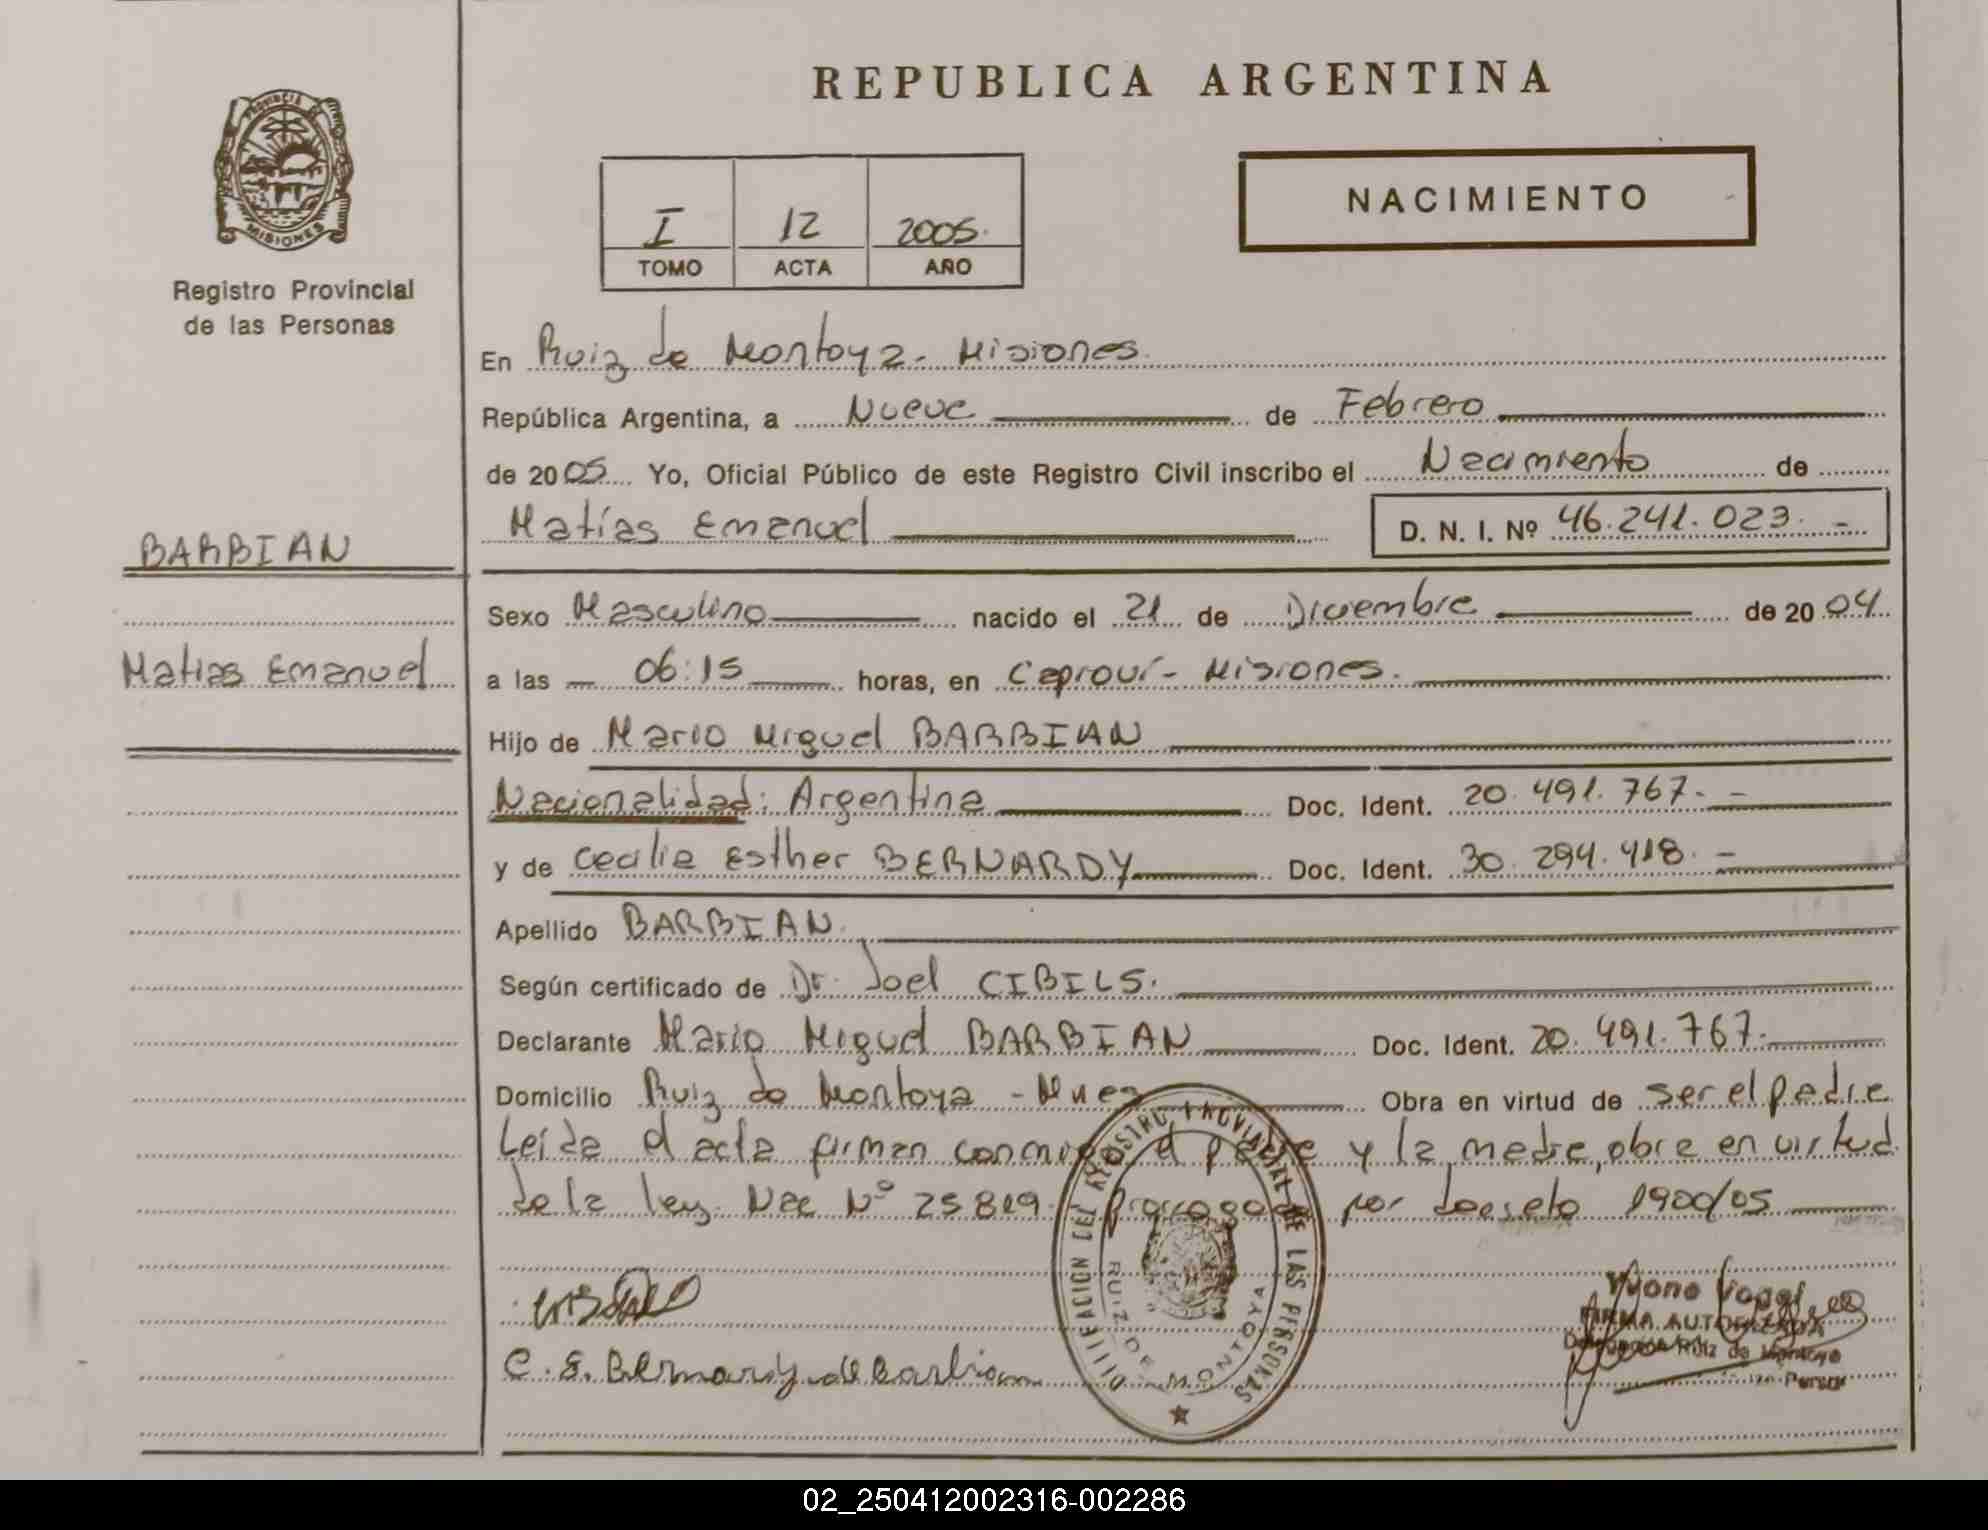 REPUBLICA ARGENTINA
PROVINCIA DE MISIONES
Registro Provincial
de las Personas
NACIMIENTO
I 12 2005.
TOMO ACTA AÑO
En Ruiz de Montoya - Misiones.
República Argentina, a Nueve de Febrero
de 2005 Yo, Oficial Público de este Registro Civil inscribo el Nacimiento de
Matías Emanuel D. N. I. Nº 46.241.023. -
BARBIAN
Matias Emanuel
Sexo Masculino nacido el 21 de Diciembre de 2004
a las 06:15 horas, en Capioví - Misiones.
Hijo de Mario Miguel BARBIAN
Nacionalidad: Argentina Doc. Ident. 20.491.767. -
y de Cecilia Esther BERNARDY Doc. Ident. 30.294.418. -
Apellido BARBIAN.
Según certificado de Dr. Joel CIBILS.
Declarante Mario Miguel BARBIAN Doc. Ident. 20.491.767.
Domicilio Ruiz de Montoya - Mnes Obra en virtud de ser el padre
Leída el acta firman conmigo el padre y la madre, obra en virtud
de la ley Nac Nº 25819 Prorrogada por decreto 1900/05
C. E. Bernardy de Barbian
REGISTRO PROVINCIAL DE LAS PERSONAS
RUIZ DE MONTOYA
FIRMA AUTORIZADA
Delegación Ruiz de Montoya
02_250412002316-002286